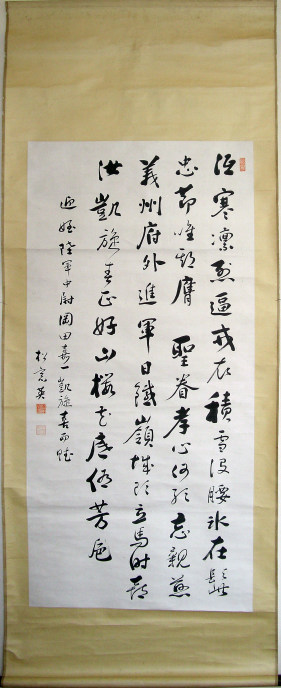 沍寒凛烈逼戎衣積雪没腰氷在髭
忠節唯期膺 聖眷孝心何忘親慈
義州府外進軍日鐵嶺城頭立馬時期
汝凱旋春正好山櫻花底侑芳巵
迎姪陸軍中尉岡田嘉一凱旋喜而賦
松窓英